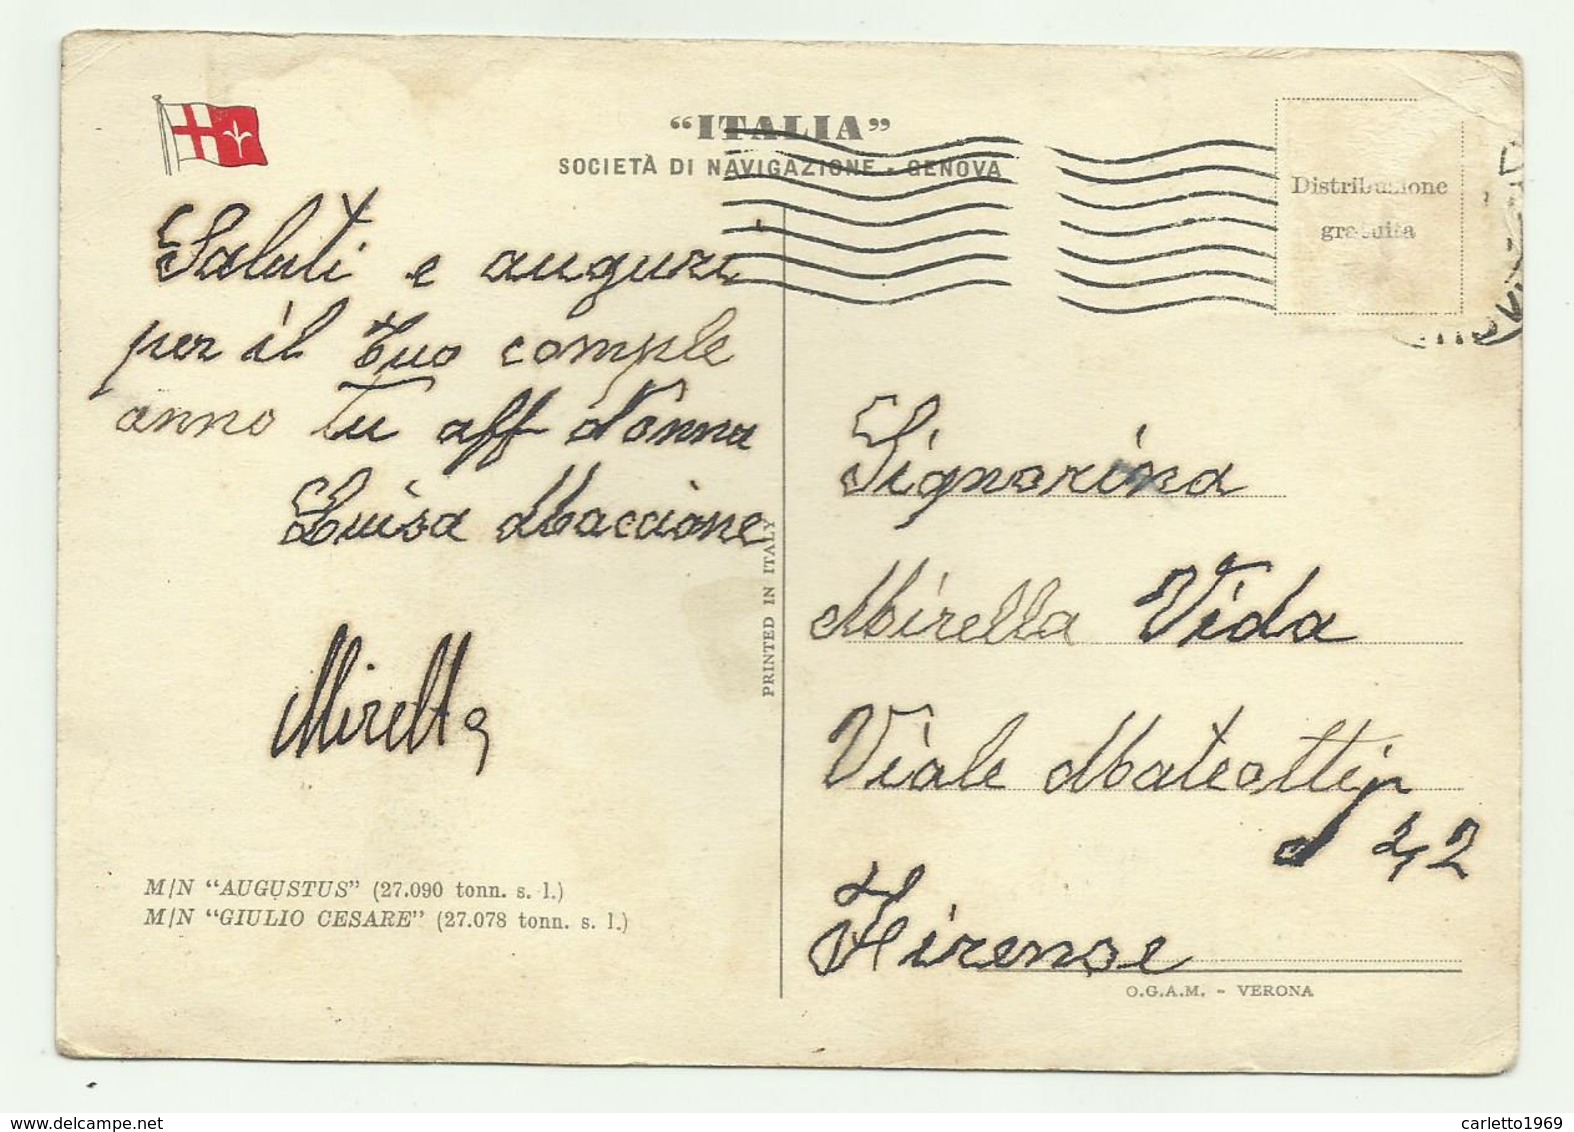 “ITALIA”
SOCIETÀ DI NAVIGAZIONE - GENOVA
Distribuzione
gratuita
Saluti e auguri
per il tuo comple
anno tu aff Nonna
Luisa Maccione
Miretta
M/N “AUGUSTUS” (27.090 tonn. s. l.)
M/N “GIULIO CESARE” (27.078 tonn. s. l.)
PRINTED IN ITALY
Signorina
Mirella Vida
Viale Mateotti
Firense
O.G.A.M. - VERONA
carletto1969